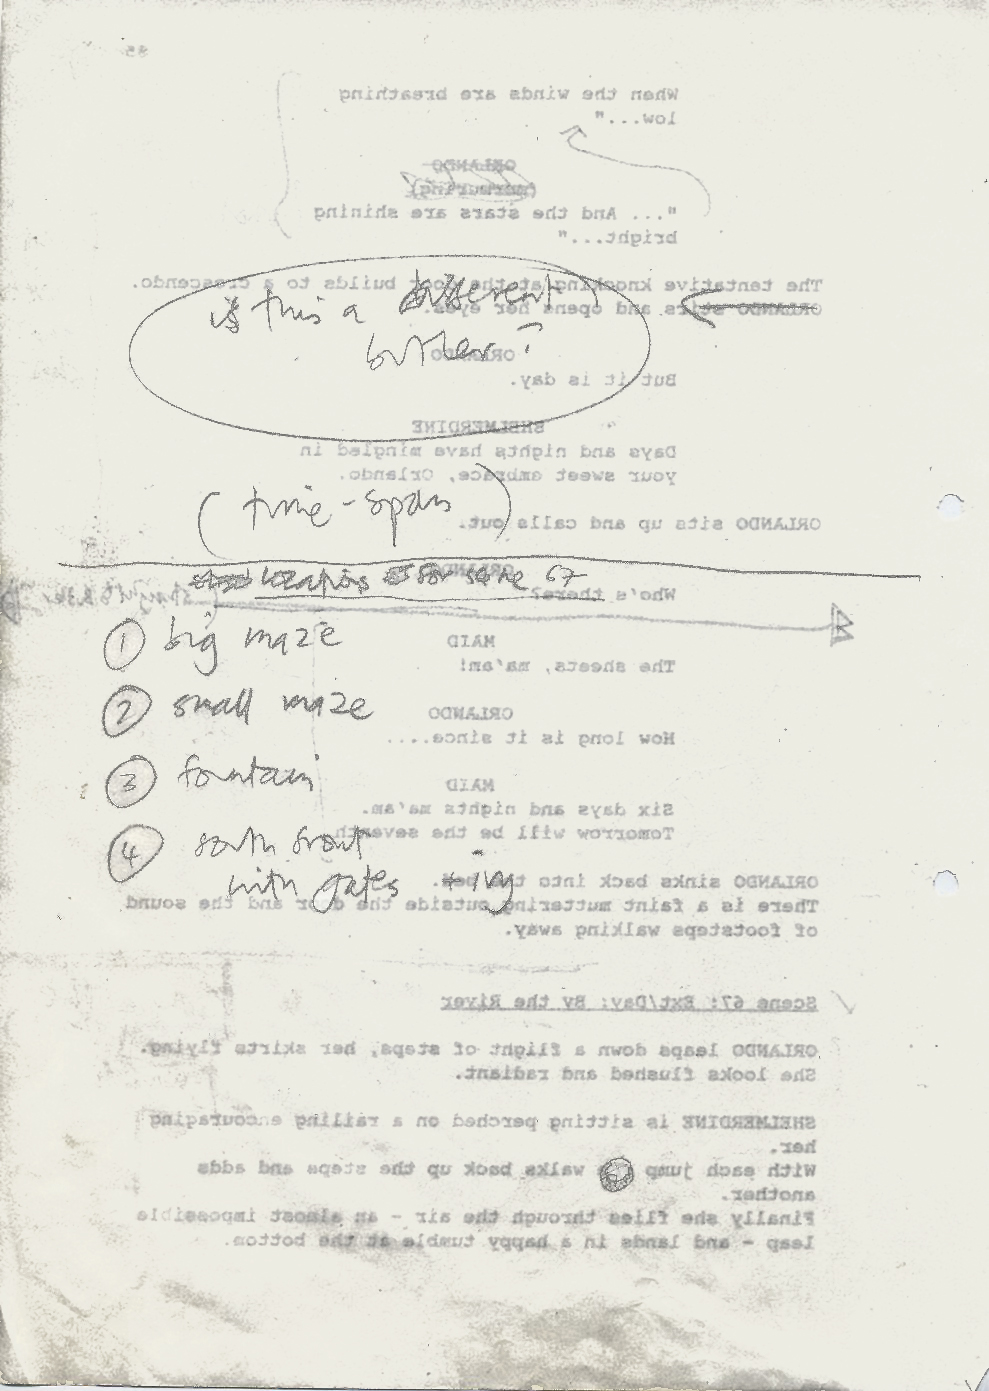 85
When the winds are breathing
low..."
ORLANDO
(murmuring)
"... And the stars are shining
bright..."
The tentative knocking at the door builds to a crescendo.
ORLANDO stirs and opens her eyes.
is this a different
butler?
ORLANDO
But it is day.
SHELMERDINE
Days and nights have mingled in
your sweet embrace, Orlando.
(time-span)
ORLANDO sits up and calls out.
ORLANDO
locations for scene 67
Who's there?
① big maze
MAID
The sheets, ma'am!
② small maze
ORLANDO
How long is it since....
③ fountain
MAID
Six days and nights ma'am.
Tomorrow will be the seventh.
④ south front
with gates + ivy
ORLANDO sinks back into the bed.
There is a faint muttering outside the door and the sound
of footsteps walking away.
Scene 67: Ext/Day: By the River
ORLANDO leaps down a flight of steps, her skirts flying.
She looks flushed and radiant.
SHELMERDINE is sitting perched on a railing encouraging
her.
With each jump walks back up the steps and adds
another.
Finally she flies through the air - an almost impossible
leap - and lands in a happy tumble at the bottom.